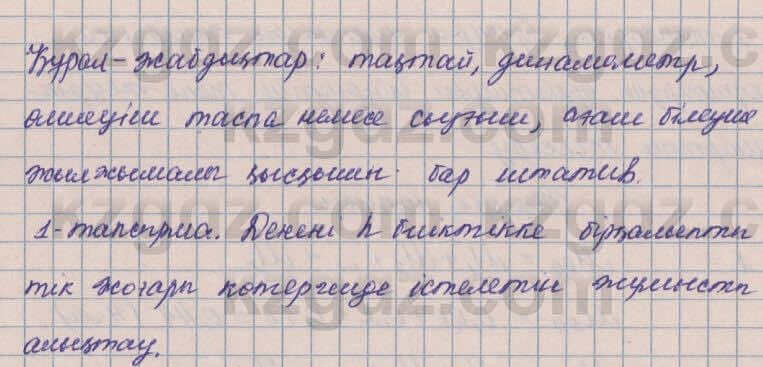 Құрал-жабдықтар: тақтай, динамометр,
өлшеуіш таспа немесе сызғыш, ағаш білеуше
жылжымалы қысқышы бар штатив.
1-тапсырма. Денені h биіктікке бірқалыпты
тік жоғары көтергенде істелетін жұмысты
анықтау.